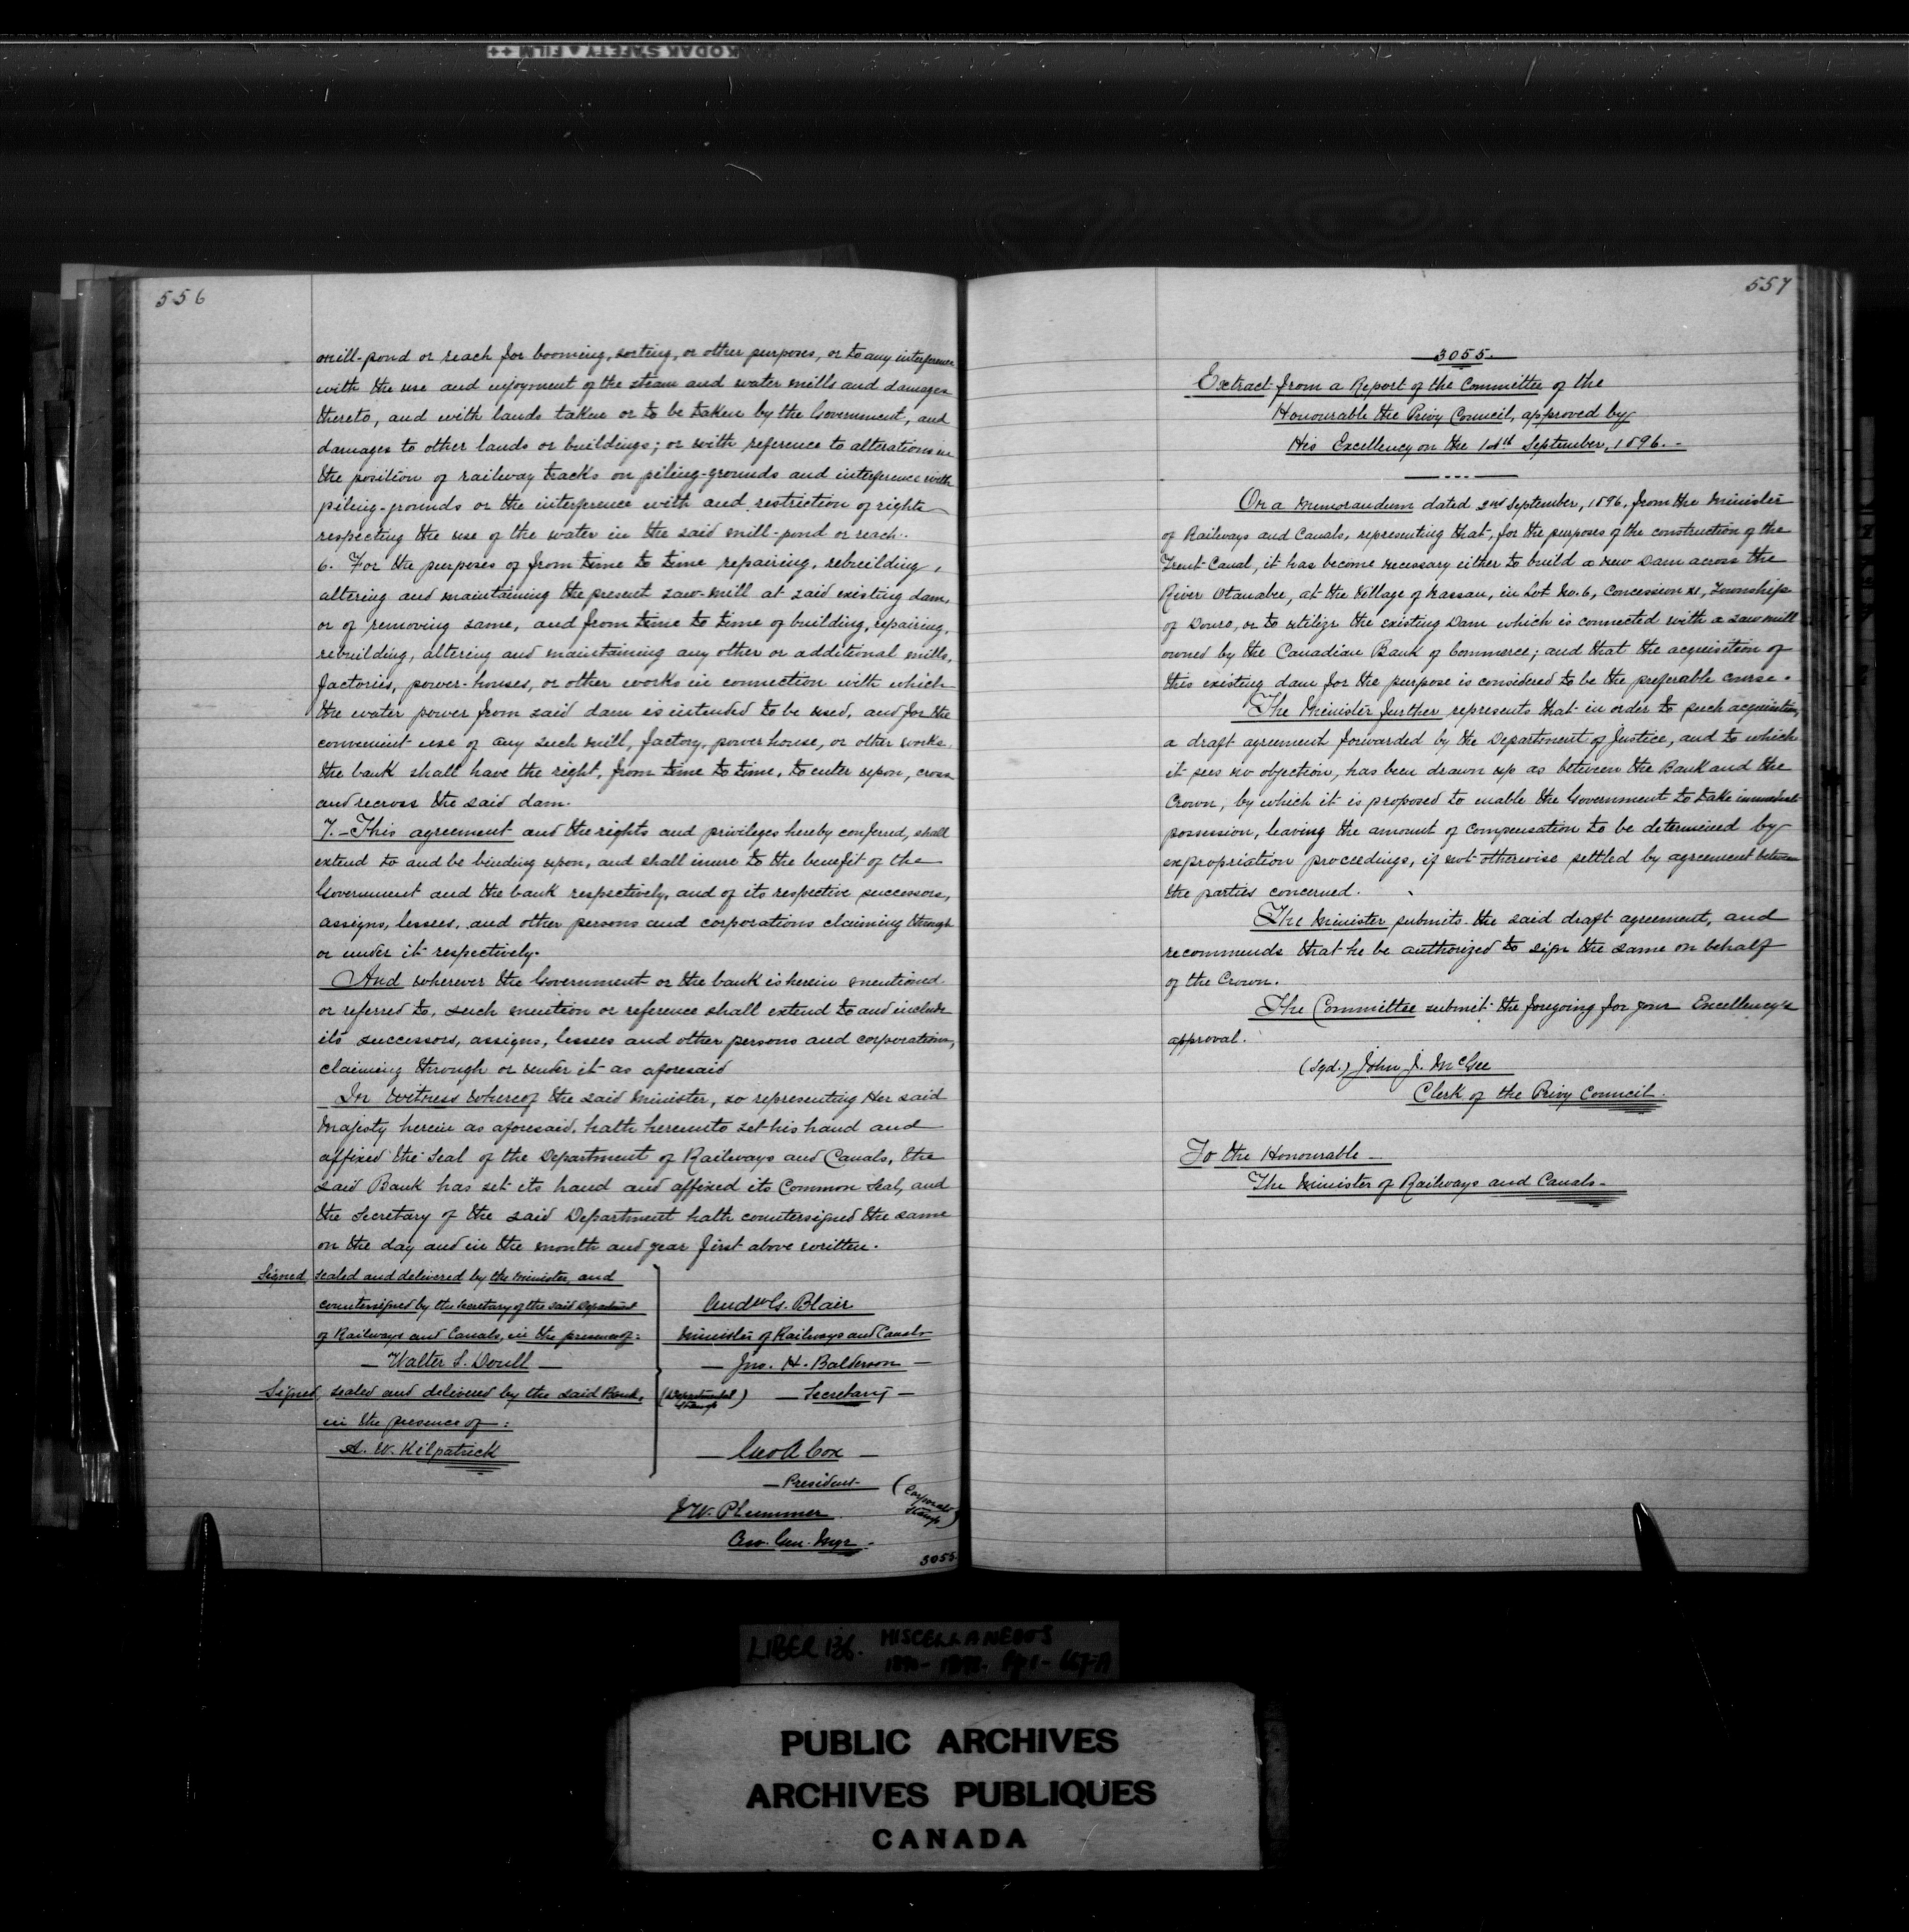 KODAK SAFETY A FILM ++
556
mill-pond or reach for booming, sorting, or other purposes, or to any interference
with the use and enjoyment of the steam and water mills and damages
thereto, and with lands taken or to be taken by the Government, and
damages to other lands or buildings; or with reference to alterations in
the position of railway tracks on piling-grounds and interference with
piling-grounds or the interference with and restriction of rights
respecting the use of the water in the said mill-pond or reach.
6. For the purposes of from time to time repairing, rebuilding,
altering and maintaining the present saw-mill at said existing dam,
or of removing same, and from time to time of building, repairing,
rebuilding, altering and maintaining any other or additional mills,
factories, power-houses, or other works in connection with which
the water power from said dam is intended to be used, and for the
convenient use of any such mill, factory, power house, or other works,
the bank shall have the right, from time to time, to enter upon, cross
and recross the said dam.
7. - This agreement and the rights and privileges hereby conferred, shall
extend to and be binding upon, and shall inure to the benefit of the
Government and the bank respectively, and of its respective successors,
assigns, lessees, and other persons and corporations claiming through
or under it respectively.
And wherever the Government or the bank is herein mentioned
or referred to, such mention or reference shall extend to and include
its successors, assigns, lessees and other persons and corporations,
claiming through or under it as aforesaid
In Witness Whereof the said Minister, so representing Her said
Majesty herein as aforesaid, hath hereunto set his hand and
affixed the Seal of the Department of Railways and Canals, the
said Bank has set its hand and affixed its Common Seal, and
the Secretary of the said Department hath countersigned the same
on the day and in the month and year first above written.
Signed, sealed and delivered by the Minister, and
countersigned by the Secretary of the said Department
of Railways and Canals, in the presence of:
— Walter S. Doull —
Signed, sealed and delivered by the said Bank,
in the presence of:
A. W. Kilpatrick
Andw G. Blair
Minister of Railways and Canals
— Jno. H. Balderson —
(Departmental Stamp) — Secretary —
— Geo A Cox —
— President —
(Corporate Stamp)
J W. Plummer
Ass. Gen. Mgr.
3055
557
3055.
Extract from a Report of the Committee of the
Honourable the Privy Council, approved by
His Excellency on the 14th September, 1896. -
On a Memorandum dated 2nd September, 1896, from the Minister
of Railways and Canals, representing that, for the purposes of the construction of the
Trent Canal, it has become necessary either to build a new Dam across the
River Otanabee, at the Village of Nassau, in Lot No. 6, Concession XI, Township
of Douro, or to utilize the existing Dam which is connected with a saw mill
owned by the Canadian Bank of Commerce; and that the acquisition of
this existing dam for the purpose is considered to be the preferable course.
The Minister further represents that in order to such acquisition,
a draft agreement forwarded by the Department of Justice, and to which
it sees no objection, has been drawn up as between the Bank and the
Crown, by which it is proposed to enable the Government to take immediate
possession, leaving the amount of compensation to be determined by
expropriation proceedings, if not otherwise settled by agreement between
the parties concerned.
The Minister submits the said draft agreement, and
recommends that he be authorized to sign the same on behalf
of the Crown.
The Committee submit the foregoing for your Excellency's
approval.
(Sgd.) John J. McGee
Clerk of the Privy Council.
To the Honourable —
The Minister of Railways and Canals -
LIBER 136. MISCELLANEOUS
PUBLIC ARCHIVES
ARCHIVES PUBLIQUES
CANADA